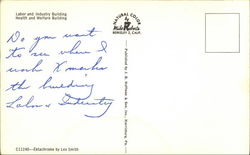 Labor and Industry Building
Health and Welfare Building
Do you want
to see where I
work X marks
the building
Labor & Industry
NATURAL COLOR
Mike Roberts
BERKELEY 2, CALIF.
C11240—Ektachrome by Les Smith